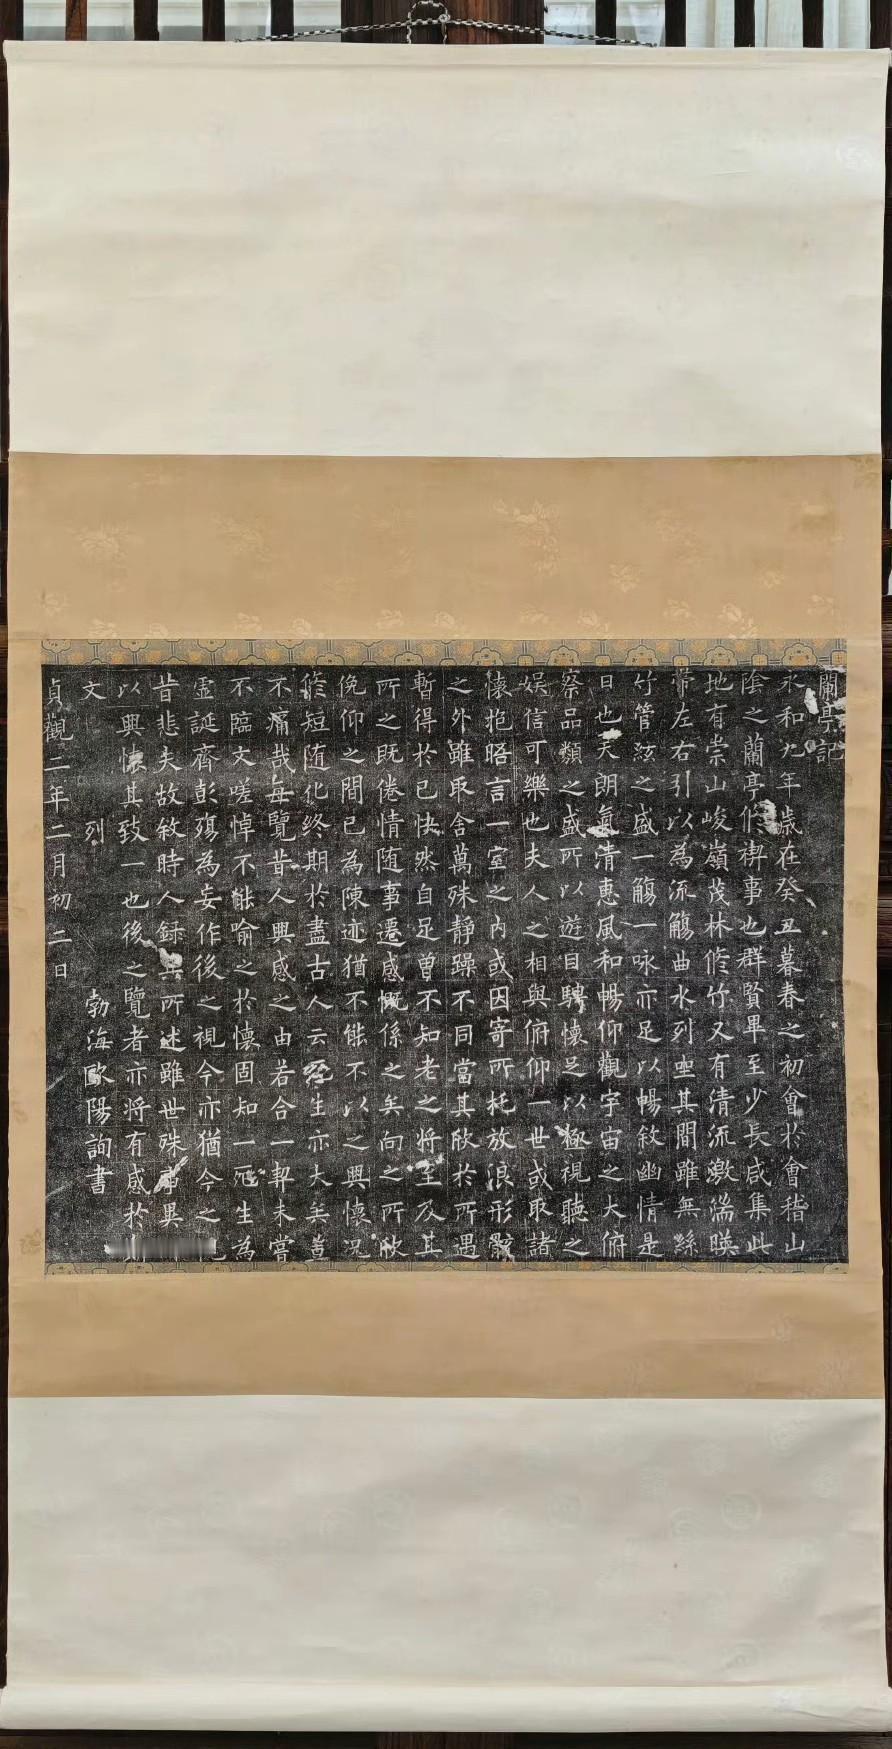 蘭亭記
永和九年歲在癸丑暮春之初會於會稽山
陰之蘭亭脩禊事也群賢畢至少長咸集此
地有崇山峻嶺茂林脩竹又有清流激湍暎
帶左右引以為流觴曲水列坐其間雖無絲
竹管絃之盛一觴一咏亦足以暢敘幽情是
日也天朗氣清惠風和暢仰觀宇宙之大俯
察品類之盛所以遊目騁懷足以極視聽之
娱信可樂也夫人之相與俯仰一世或取諸
懷抱晤言一室之內或因寄所托放浪形骸
之外雖取舍萬殊靜躁不同當其欣於所遇
暫得於己快然自足曾不知老之將至及其
所之既倦情随事遷感慨係之矣向之所欣
俛仰之間已為陳迹猶不能不以之興懷况
脩短随化終期於盡古人云死生亦大矣豈
不痛哉每覽昔人興感之由若合一契未嘗
不臨文嗟悼不能喻之於懷固知一死生為
虛誕齊彭殤為妄作後之視今亦猶今之
昔悲夫故敘時人録其所述雖世殊事異
以興懷其致一也後之覽者亦將有感於
文 列 勃海歐陽詢書
貞觀二年二月初二日